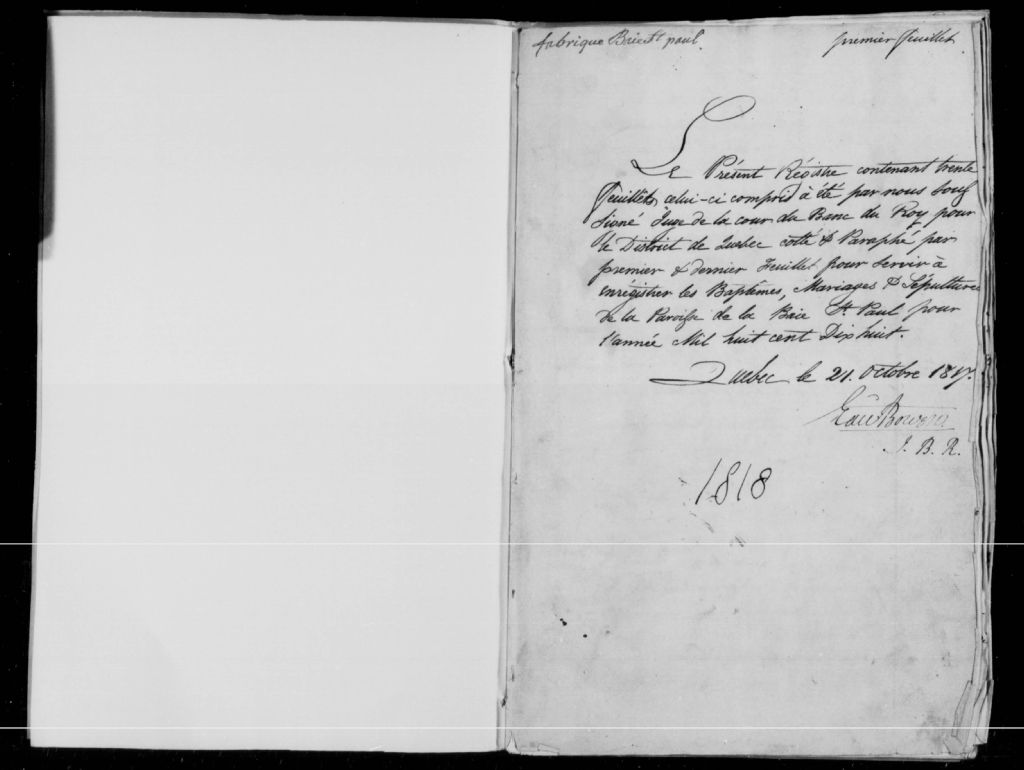 fabrique Baie St paul.
premier feuillet.
Le Présent Régistre contenant trente
feuillets celui-ci compris à été par nous Souſ
signé Juge de la cour du Banc du Roy pour
le District de Quebec cotté & Paraphé par
premier & dernier Feuillet pour servir à
enrégistrer les Baptêmes, Mariages & Sépultures
de la Paroiſse de la Baie St. Paul pour
l'année Mil huit cent Dixhuit.
Quebec le 21. Octobre 1817.
Edwd Bowen
J. B. R.
1818